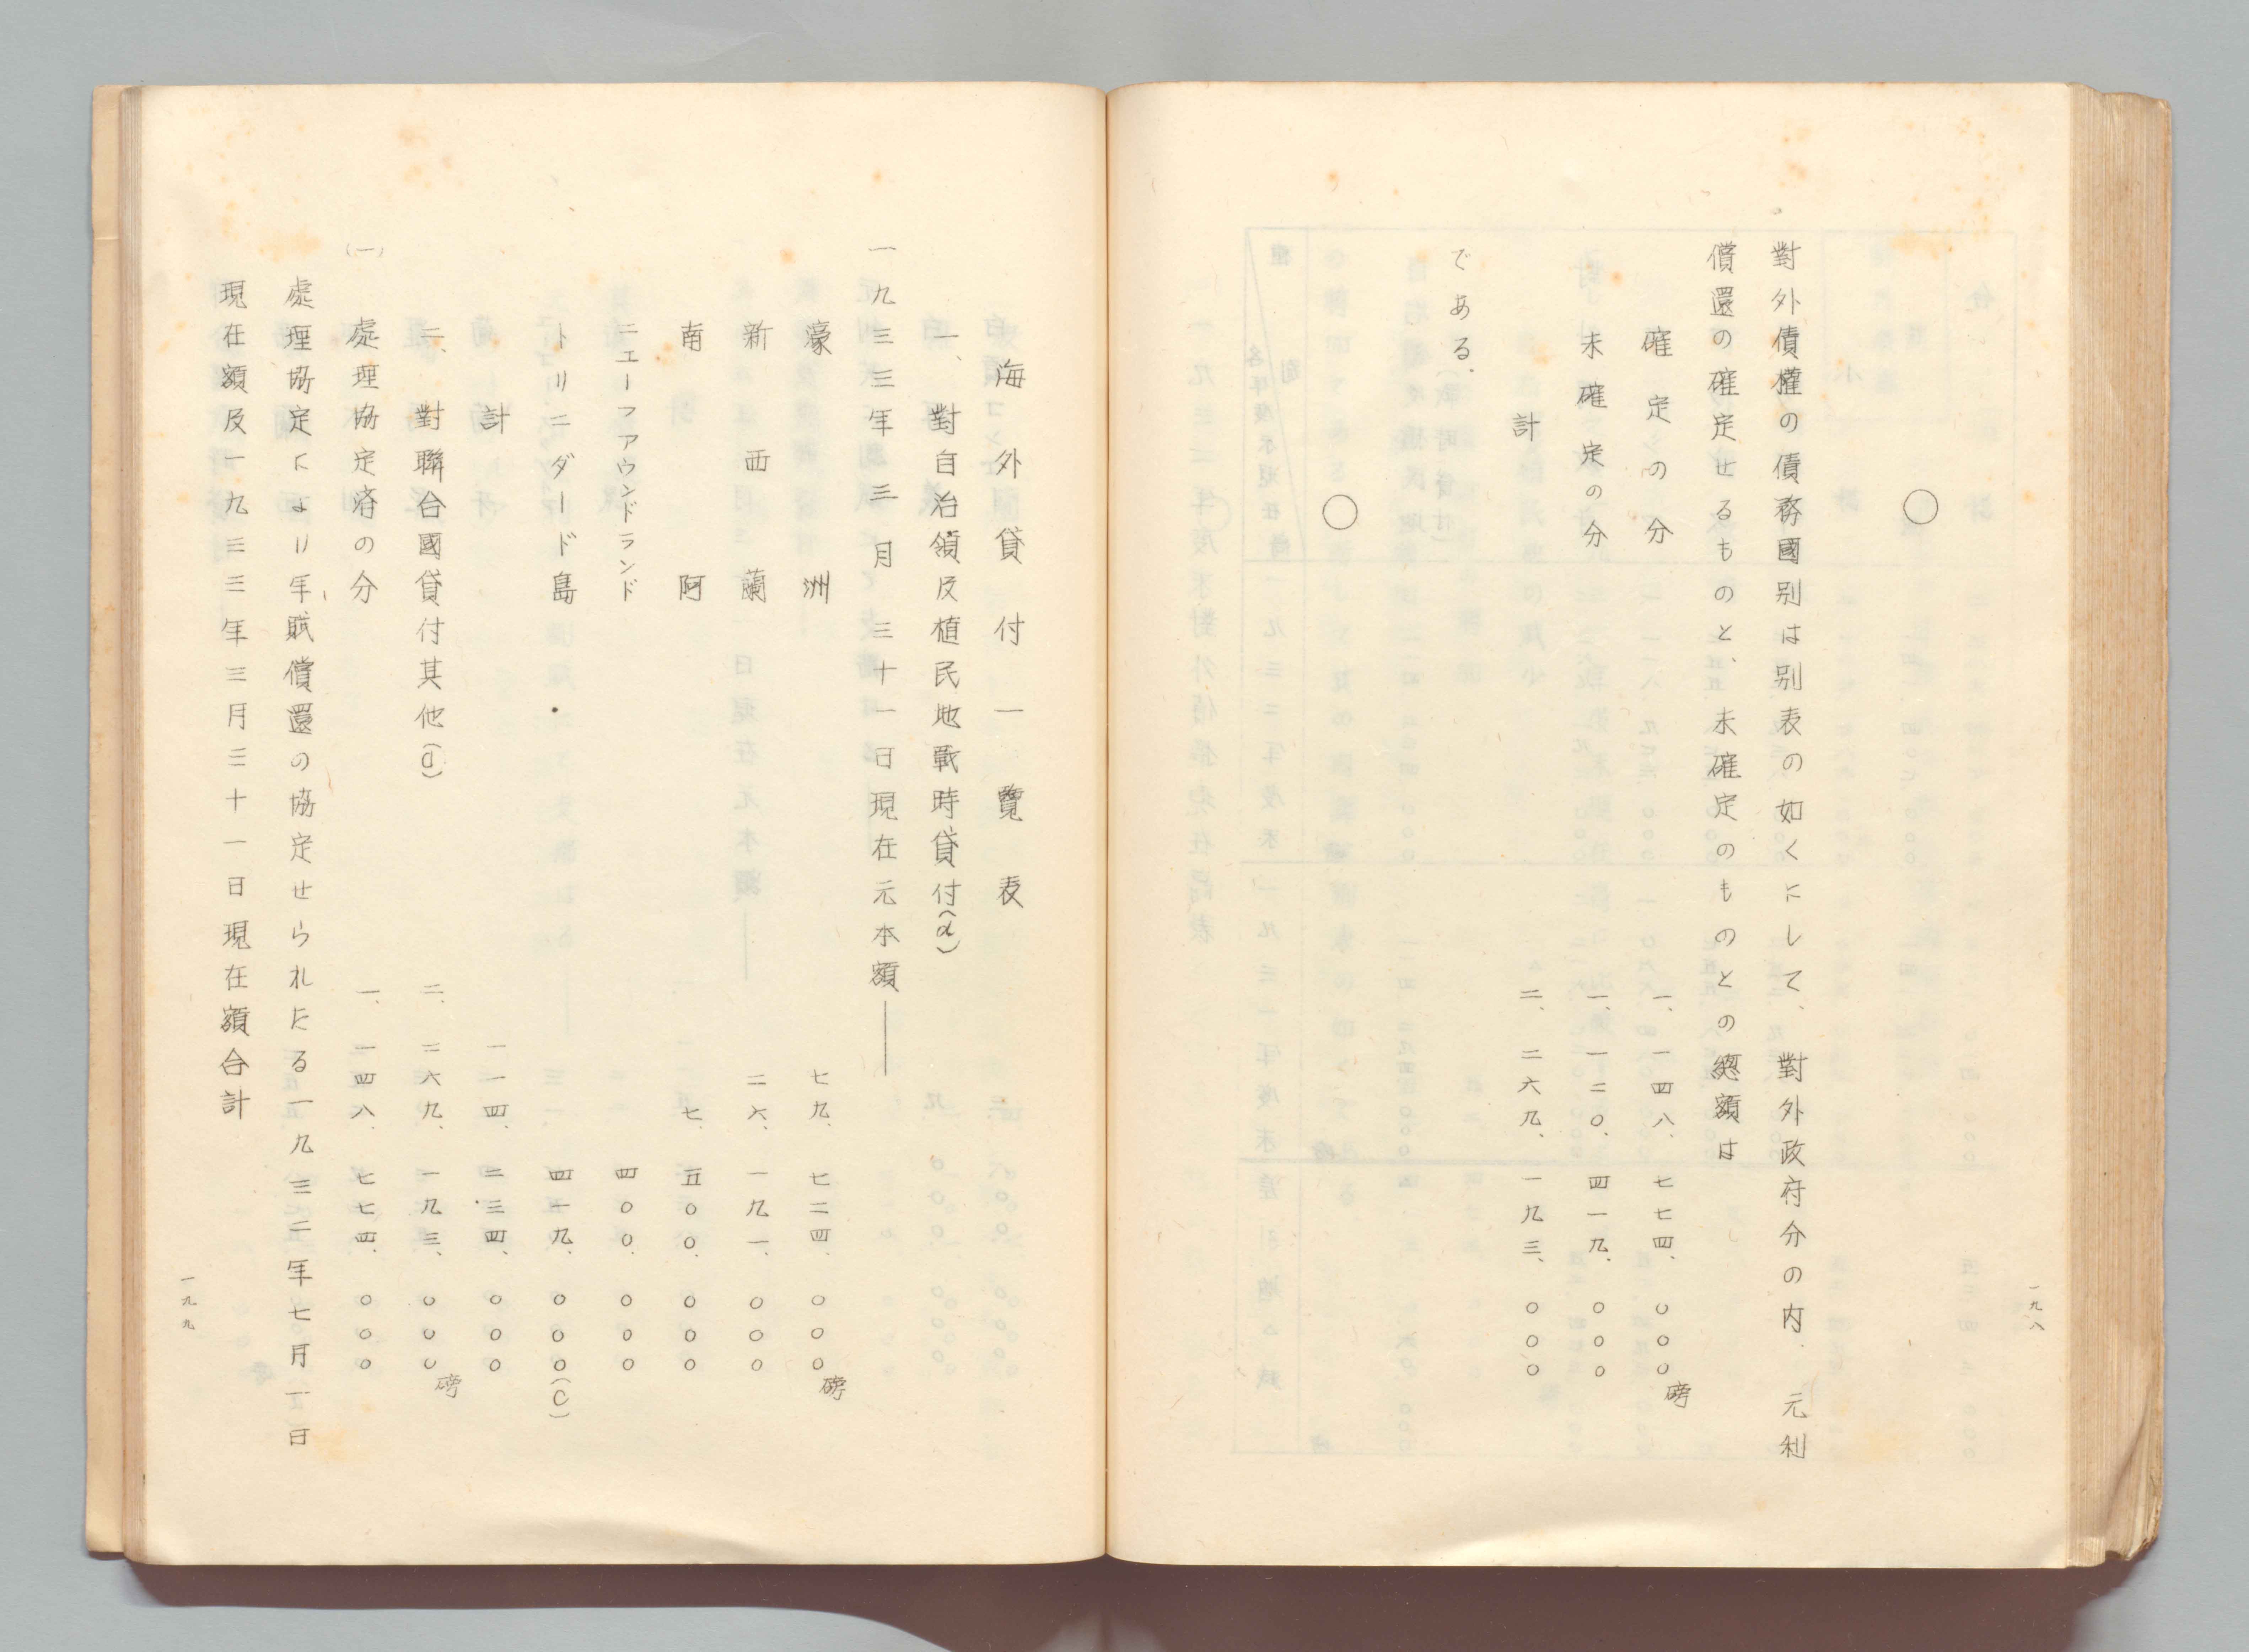 ○
對外債權の債務國別は別表の如くにして、對外政府分の内、元利
償還の確定せるものと、未確定のものとの總額は
確定の分 一、一四八、七七四、〇〇〇磅
未確定の分 一、一二〇、四一九、〇〇〇
計 二、二六九、一九三、〇〇〇
である.
○
一九八
海外貸付一覽表
一、對自治領及植民地戰時貸付(a)
一九三三年三月三十一日現在元本額——
濠洲 七九、七二四、〇〇〇磅
新西蘭 二六、一九一、〇〇〇
南阿 七、五〇〇、〇〇〇
ニエーフアウンドランド 四〇〇、〇〇〇
トリニダード島 四一九、〇〇〇(C)
計 一一四、二三四、〇〇〇
二、對聯合國貸付其他(d) 二、二六九、一九三、〇〇〇磅
(一) 處理協定濟の分 一、一四八、七七四、〇〇〇
處理協定により年賦償還の協定せられたる一九三二年七月一日
現在額及一九三三年三月三十一日現在額合計
一九九